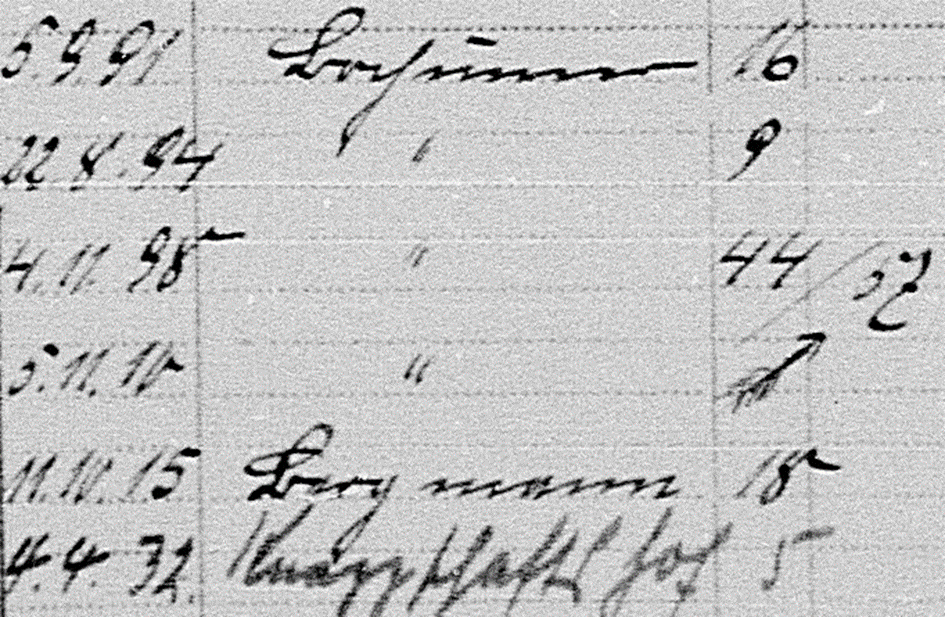 5.9.91 Bochumer 16
22.8.94 " 9
4.11.98 " 44/57
5.11.10 "
11.10.15 Bergmann 18
4.4.32. Knappschaftshof 5